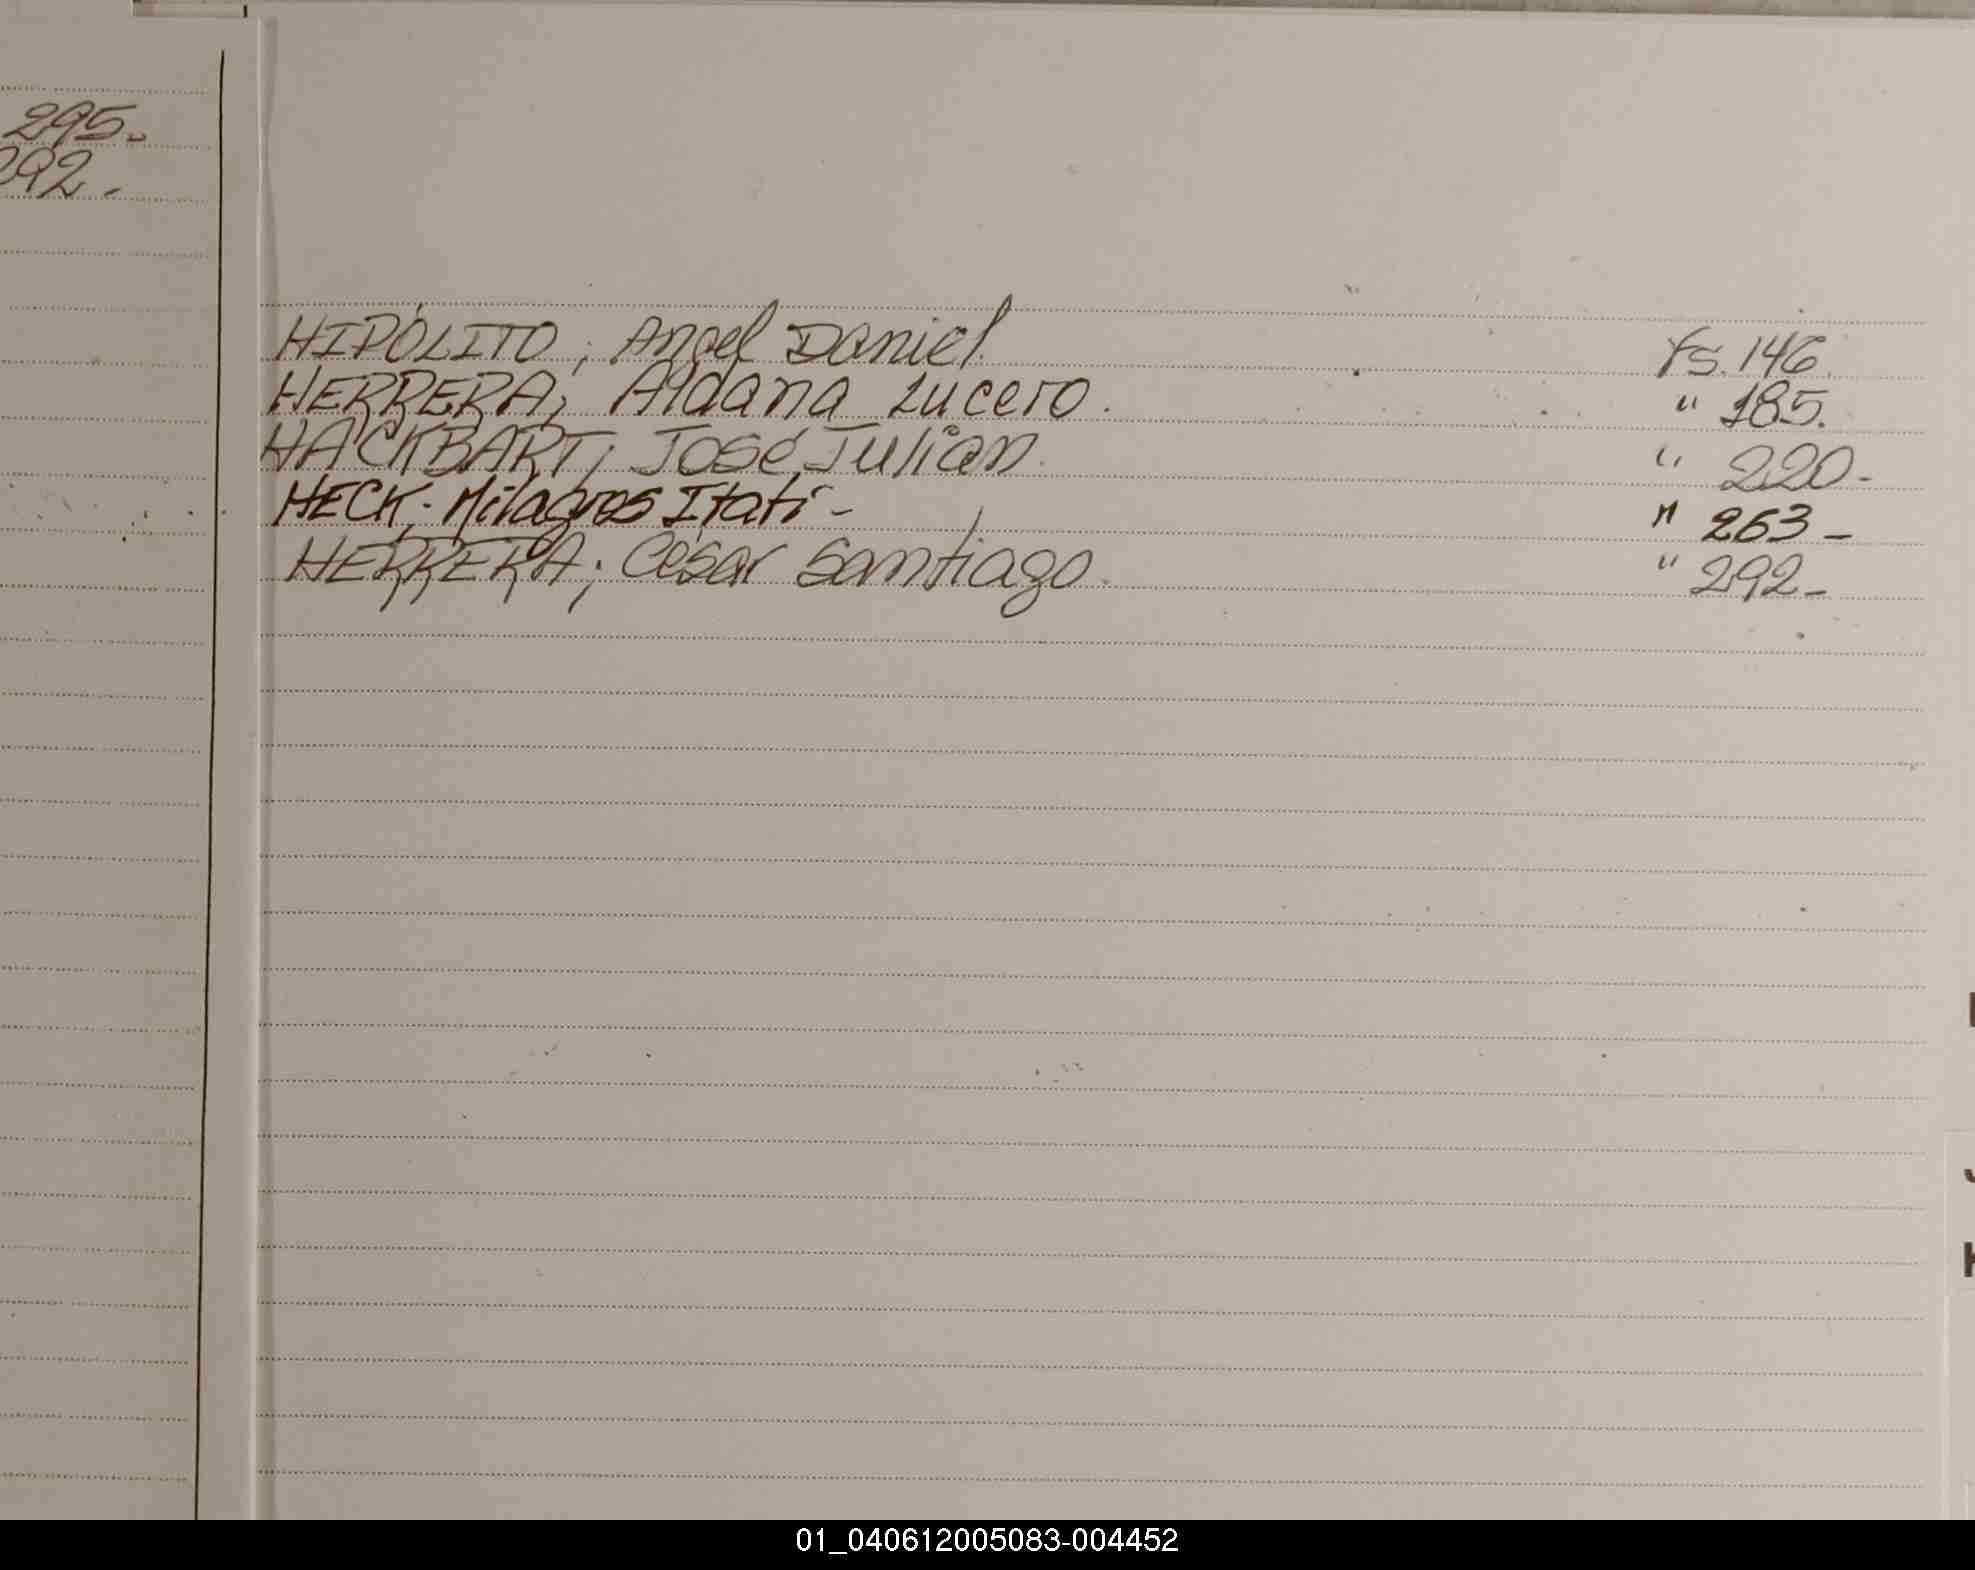 295.
292.
HIPÓLITO; Angel Daniel. Fs. 146.
HERRERA; Aldana Lucero. " 185.
HACKBART; José Julián. " 220-
HECK; Milagros Itatí - " 263-
HERRERA; César Santiago. " 292-
J
K
01_040612005083-004452